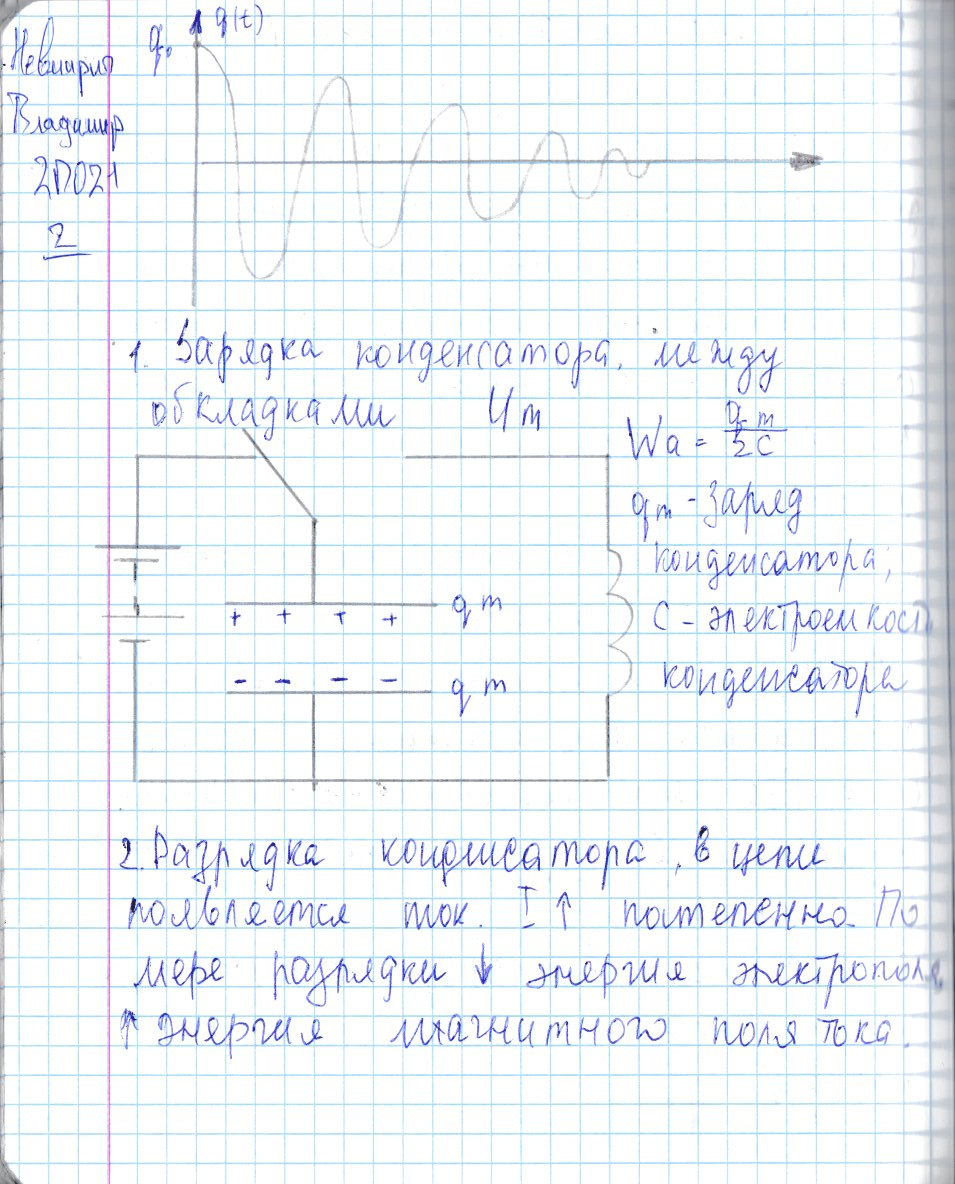 q₀ q(t)
Владимир
2П021
2
1. Зарядка конденсатора, между
обкладками Um
Wa = qm/2C
qm - заряд
конденсатора;
С - электроемкость
конденсатора
+ + + + qm
- - - - qm
2. Разрядка конденсатора, в цепи
появляется ток. I ↑ постепенно. По
мере разрядки ↓ энергия электрополя
↑ энергия магнитного поля тока.